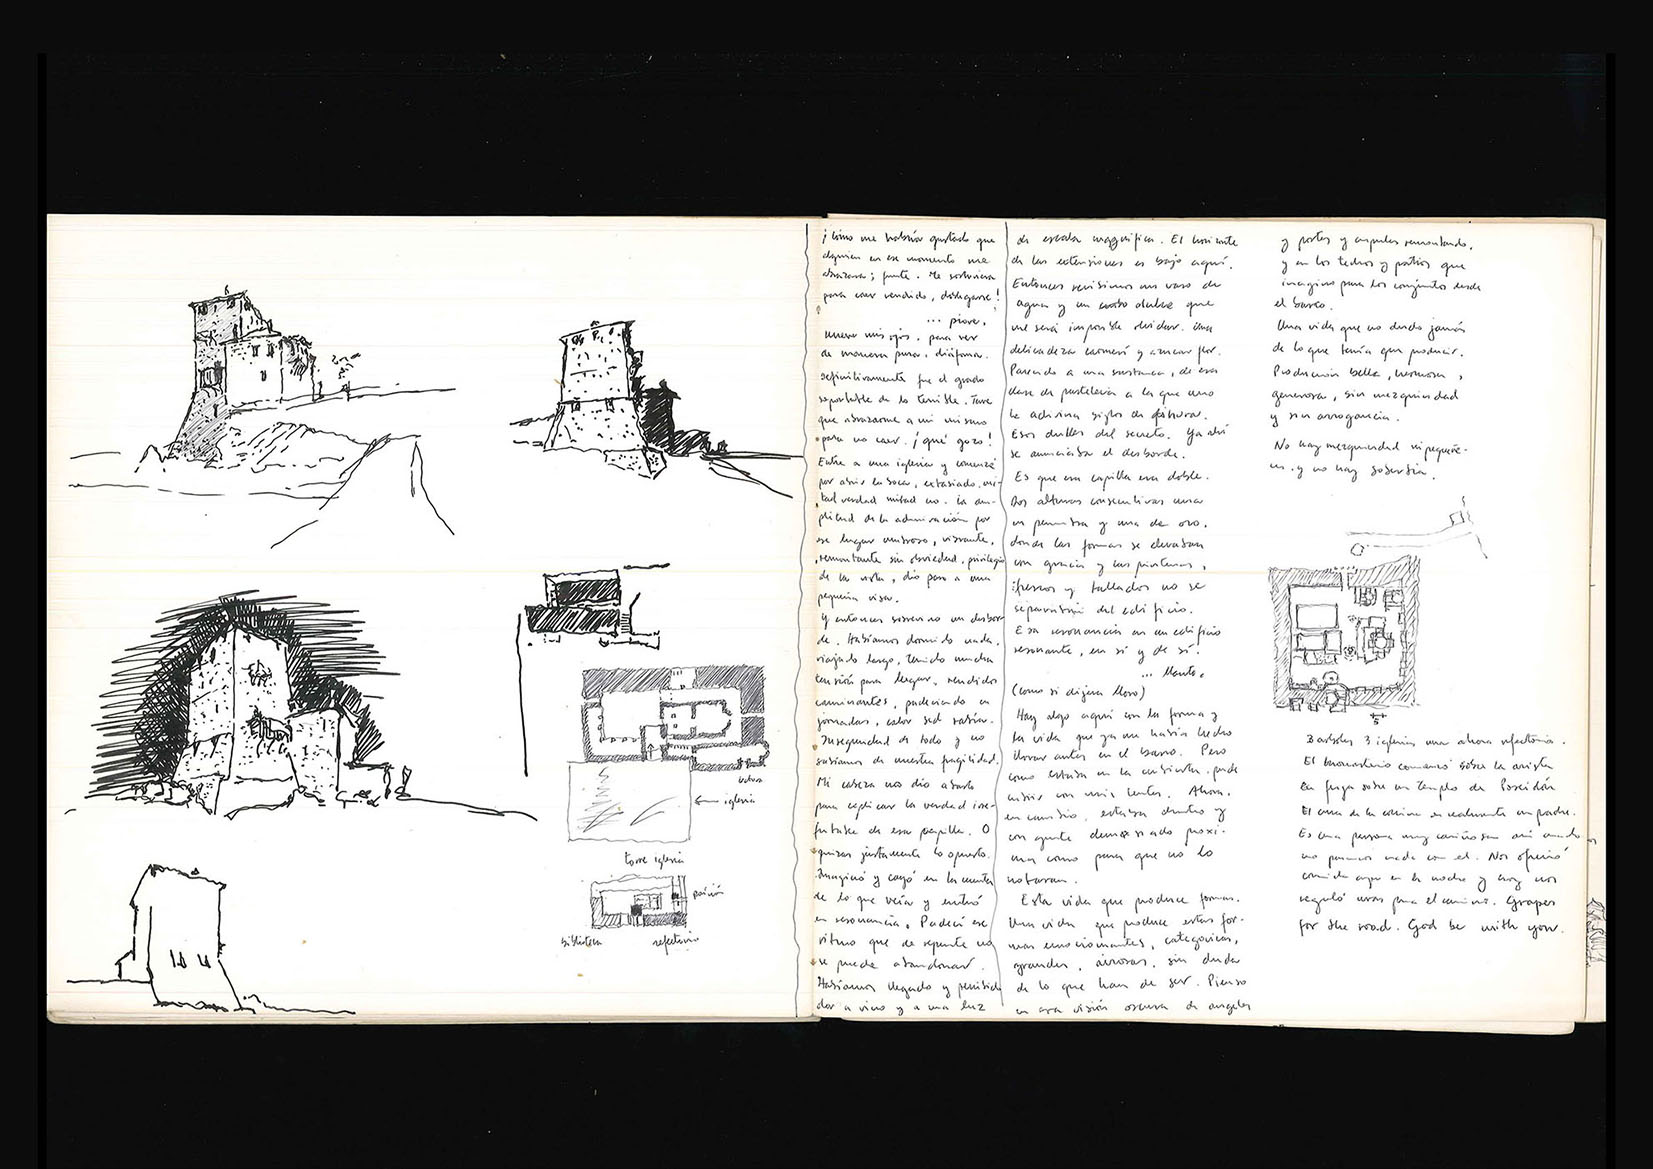 torre iglesia
biblioteca refectorio
iglesia
¡cómo me habría gustado que
alguien en ese momento me
abrazara; fuerte. Me sostuviera
para caer rendido,
mis ojos, para ver
de manera pura, diáfana.
definitivamente fue el grado
soportable de lo terrible. Tuve
que abrazarme a mi mismo
para no caer. ¡qué gozo!
Entré a una iglesia y comencé
por abrir la boca, extasiado, mi-
tad verdad mitad no. La am-
plitud de la admiración por
ese lugar umbroso, vibrante,
remontante sin obviedad, privilegio
de la vista, dio paso a una
pequeña
y entonces sobrevino un desbor-
de. Habíamos dormido nada,
viajado largo, tenido mucha
tensión para llegar, rendidos
caminantes, padeciendo en
jornadas, calor sed
Inseguridad de todo y no
sabíamos de nuestra fragilidad.
Mi cabeza no dio abasto
para explicar la verdad irre-
futable de esa capilla. O
quizas justamente lo opuesto.
Imaginó y cayó en la cuenta
de lo que veía y entró
en resonancia. Padecí ese
ritmo que de repente no
se puede abandonar.
Habíamos llegado y
a vivo y a una luz
de escala magnífica. El horizonte
de las extensiones es bajo aquí.
Entonces recibimos un vaso de
agua y un dulce que
me será imposible olvidar. Una
delicadeza carmesí y azucar flor.
Parecido a una sustancia, de esa
clase de pastelería a la que uno
le adivina siglos de
Esos dulces del secreto. Ya ahí
se anunciaba el desborde.
Es que esa capilla era doble.
Dos alturas consecutivas una
en penumbra y una de oro.
donde las formas se elevaban
con gracia y las pinturas,
frescos y tallados no se
separaban del edificio.
Esa resonancia en un edificio
resonante, en sí y de sí.
... llanto.
(como si dijera lloro)
Hay algo aquí con la forma y
la vida que ya me había hecho
llorar antes en el barco. Pero
como estaba en la cubierta, pude
con mis lentes. Ahora,
en cambio, estaba dentro y
con gente demasiado próxi-
ma como para que no lo
notaran.
Esta vida que produce formas.
Una vida que produce estas for-
mas emocionantes, categóricas,
grandes, airosas, sin duda
de lo que han de ser. Pienso
en esa visión oscura de angeles
y portes y cupulas remontando,
y en los techos y patios que
imagino para los conjuntos desde
el barco.
Una vida que no duda jamás
de lo que tenía que producir.
Producción bella, hermosa,
generosa, sin mezquindad
y sin arrogancia.
No hay mezquindad ni pequeñe-
y no hay soberbia.
3 iglesias una ahora refectorio.
El monasterio comenzó sobre la arista
sobre un templo de Poseidón
El cura de la cocina es realmente un padre.
Es una persona muy cariñosa aún cuando
no parecía nada con el. Nos ofreció
comida aquí en la noche y hoy nos
regaló uvas para el camino. Grapes
for the road. God be with you.